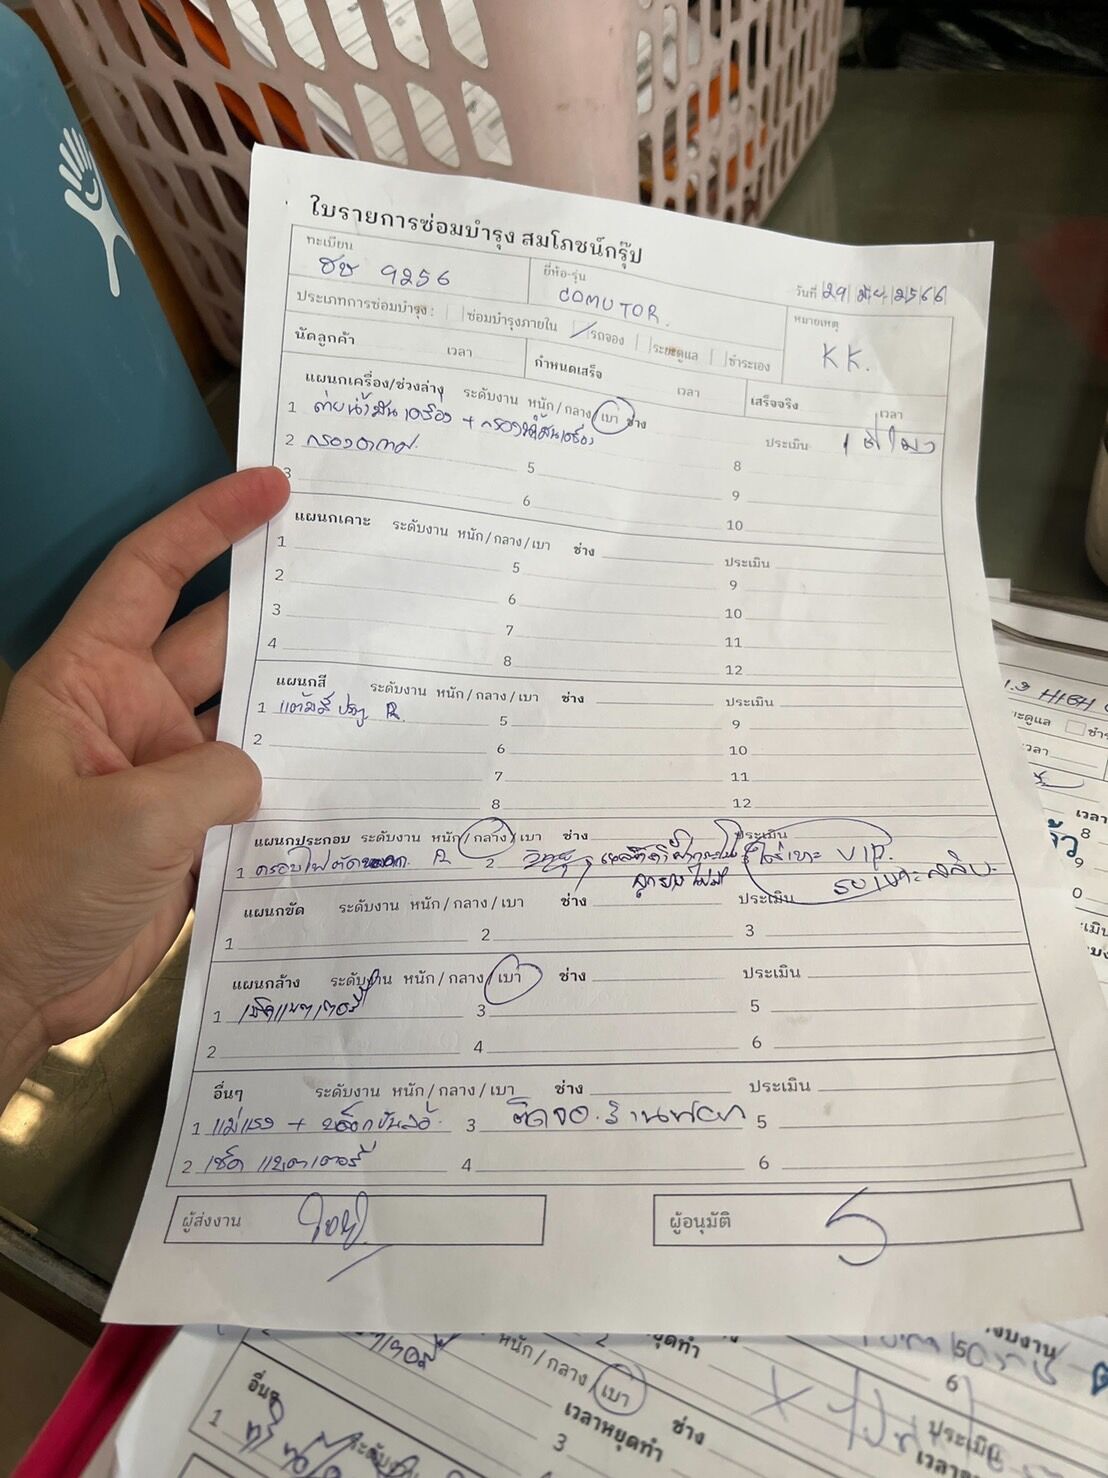 ใบรายการซ่อมบำรุง สมโภชน์กรุ๊ป
ทะเบียน
ชษ 9256
ยี่ห้อ-รุ่น
COMUTOR.
วันที่ 29 มิย 2566
หมายเหตุ
KK.
ประเภทการซ่อมบำรุง : ซ่อมบำรุงภายใน / รถจอง ระยะดูแล ชำระเอง
นัดลูกค้า เวลา กำหนดเสร็จ เวลา เสร็จจริง เวลา
แผนกเครื่อง/ช่วงล่าง ระดับงาน หนัก/กลาง/เบา ช่าง ประเมิน 1 ชั่วโมง
1 ถ่ายน้ำมันเครื่อง + กรองน้ำมันเครื่อง
2 กรองอากาศ 5 8
3 6 9
10
แผนกเคาะ ระดับงาน หนัก/กลาง/เบา ช่าง ประเมิน
1 5 9
2 6 10
3 7 11
4 8 12
แผนกสี ระดับงาน หนัก/กลาง/เบา ช่าง ประเมิน
1 แต้มสี ประตู R 5 9
2 6 10
7 11
8 12
แผนกประกอบ ระดับงาน หนัก/กลาง/เบา ช่าง ประเมิน
1 ครอบไฟตัดหมอก R 2 3 ใส่เบาะ VIP.
แผนกขัด ระดับงาน หนัก/กลาง/เบา ช่าง ประเมิน
1 2 3
แผนกล้าง ระดับงาน หนัก/กลาง/เบา ช่าง ประเมิน
1 เช็คแบตเตอรี่ 3 5
2 4 6
อื่นๆ ระดับงาน หนัก/กลาง/เบา ช่าง ประเมิน
1 แม่แรง + บล็อกขันล้อ 3 ติดจอ 5
2 เช็ค แบตเตอรี่ 4 6
ผู้ส่งงาน
ผู้อนุมัติ
1.3 HIGH
เวลา
8
9
หนัก/กลาง/เบา
เวลาหยุดทำ
ช่าง
ประเมิน
อื่นๆ
1
3
6